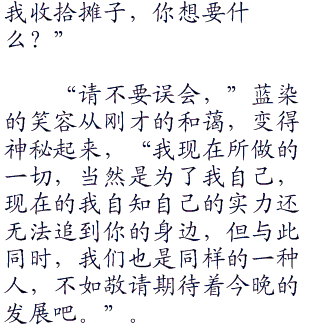 我收拾摊子，你想要什
么？”
“请不要误会，”蓝染
的笑容从刚才的和蔼，变得
神秘起来，“我现在所做的
一切，当然是为了我自己，
现在的我自知自己的实力还
无法追到你的身边，但与此
同时，我们也是同样的一种
人，不如敬请期待着今晚的
发展吧。”。